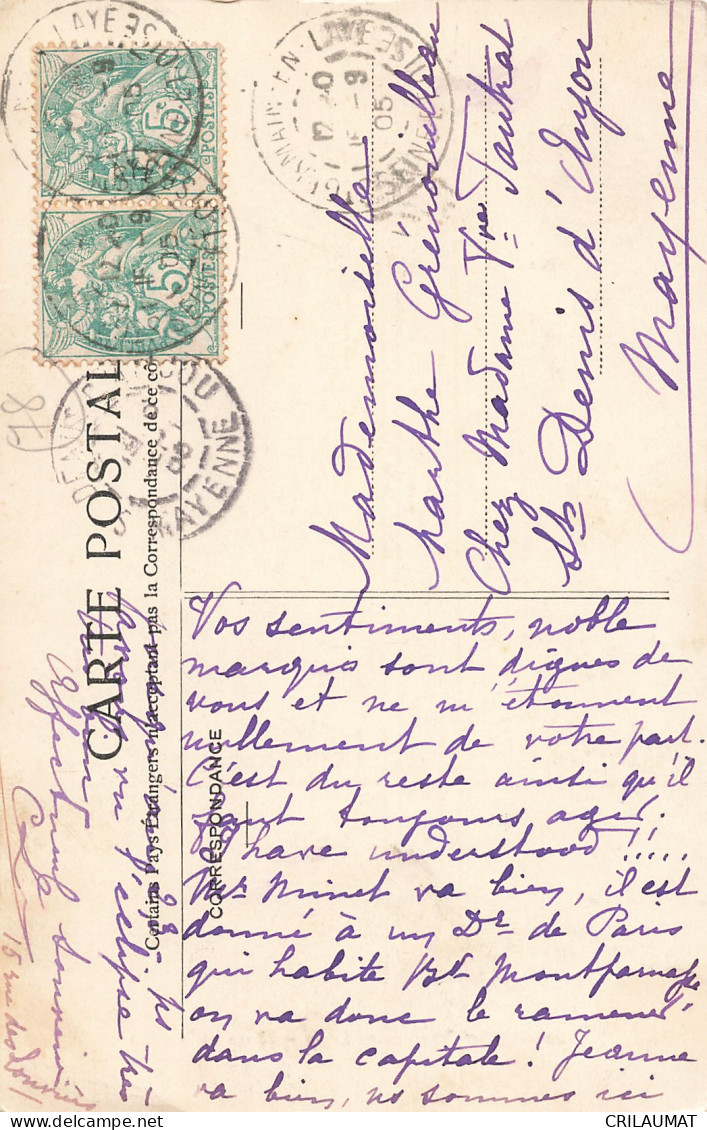 CARTE POSTALE
Certains Pays Étrangers n'acceptant pas la Correspondance de ce côté
CORRESPONDANCE
5c
POSTES
5c
POSTES
ST GERMAIN-EN-LAYE
SEINE-ET-OISE
12 40
1 - 9
05
MAYENNE
78
Mademoiselle
Marthe Grenouilleau
Chez Madame Vve Tautrat
St Denis d'Anjou
Mayenne
Vos sentiments, noble
marquis sont dignes de
vous et ne m'étonnent
nullement de votre part.
C'est du reste ainsi qu'il
faut toujours agir.
I have understood!!!..
Mr Minet va bien, il est
donné à un Dr de Paris
qui habite Bd Montparnasse
on va donc le ramener
dans la capitale! Jeanne
va bien, ns sommes ici
ns
vu l'eclipse très
bien
Affectueux souvenirs
15 rue des Louviers
CRILAUMAT